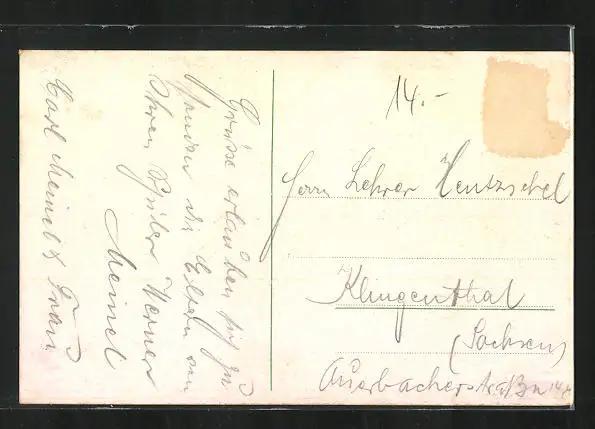 Grüsse erlauben sich zu
senden die Eltern von
Ihren Schüler Werner
Meinel
Carl Meinel & Frau
14.-
Herrn Lehrer Hentzschel
Klingenthal
(Sachsen)
Auerbacher